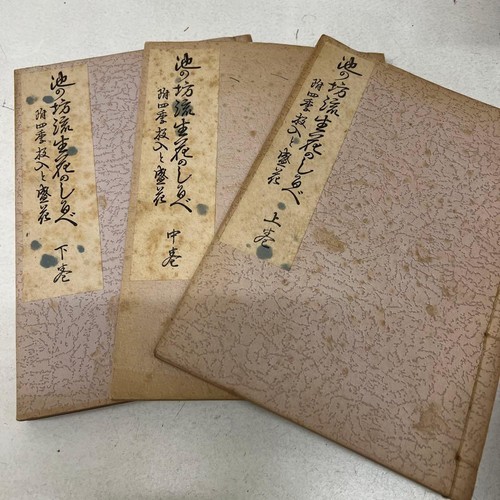 池の坊流生花のしるべ
附四季投入と盛花
下巻
池の坊流生花のしるべ
附四季投入と盛花
中巻
池の坊流生花のしるべ
附四季投入と盛花
上巻